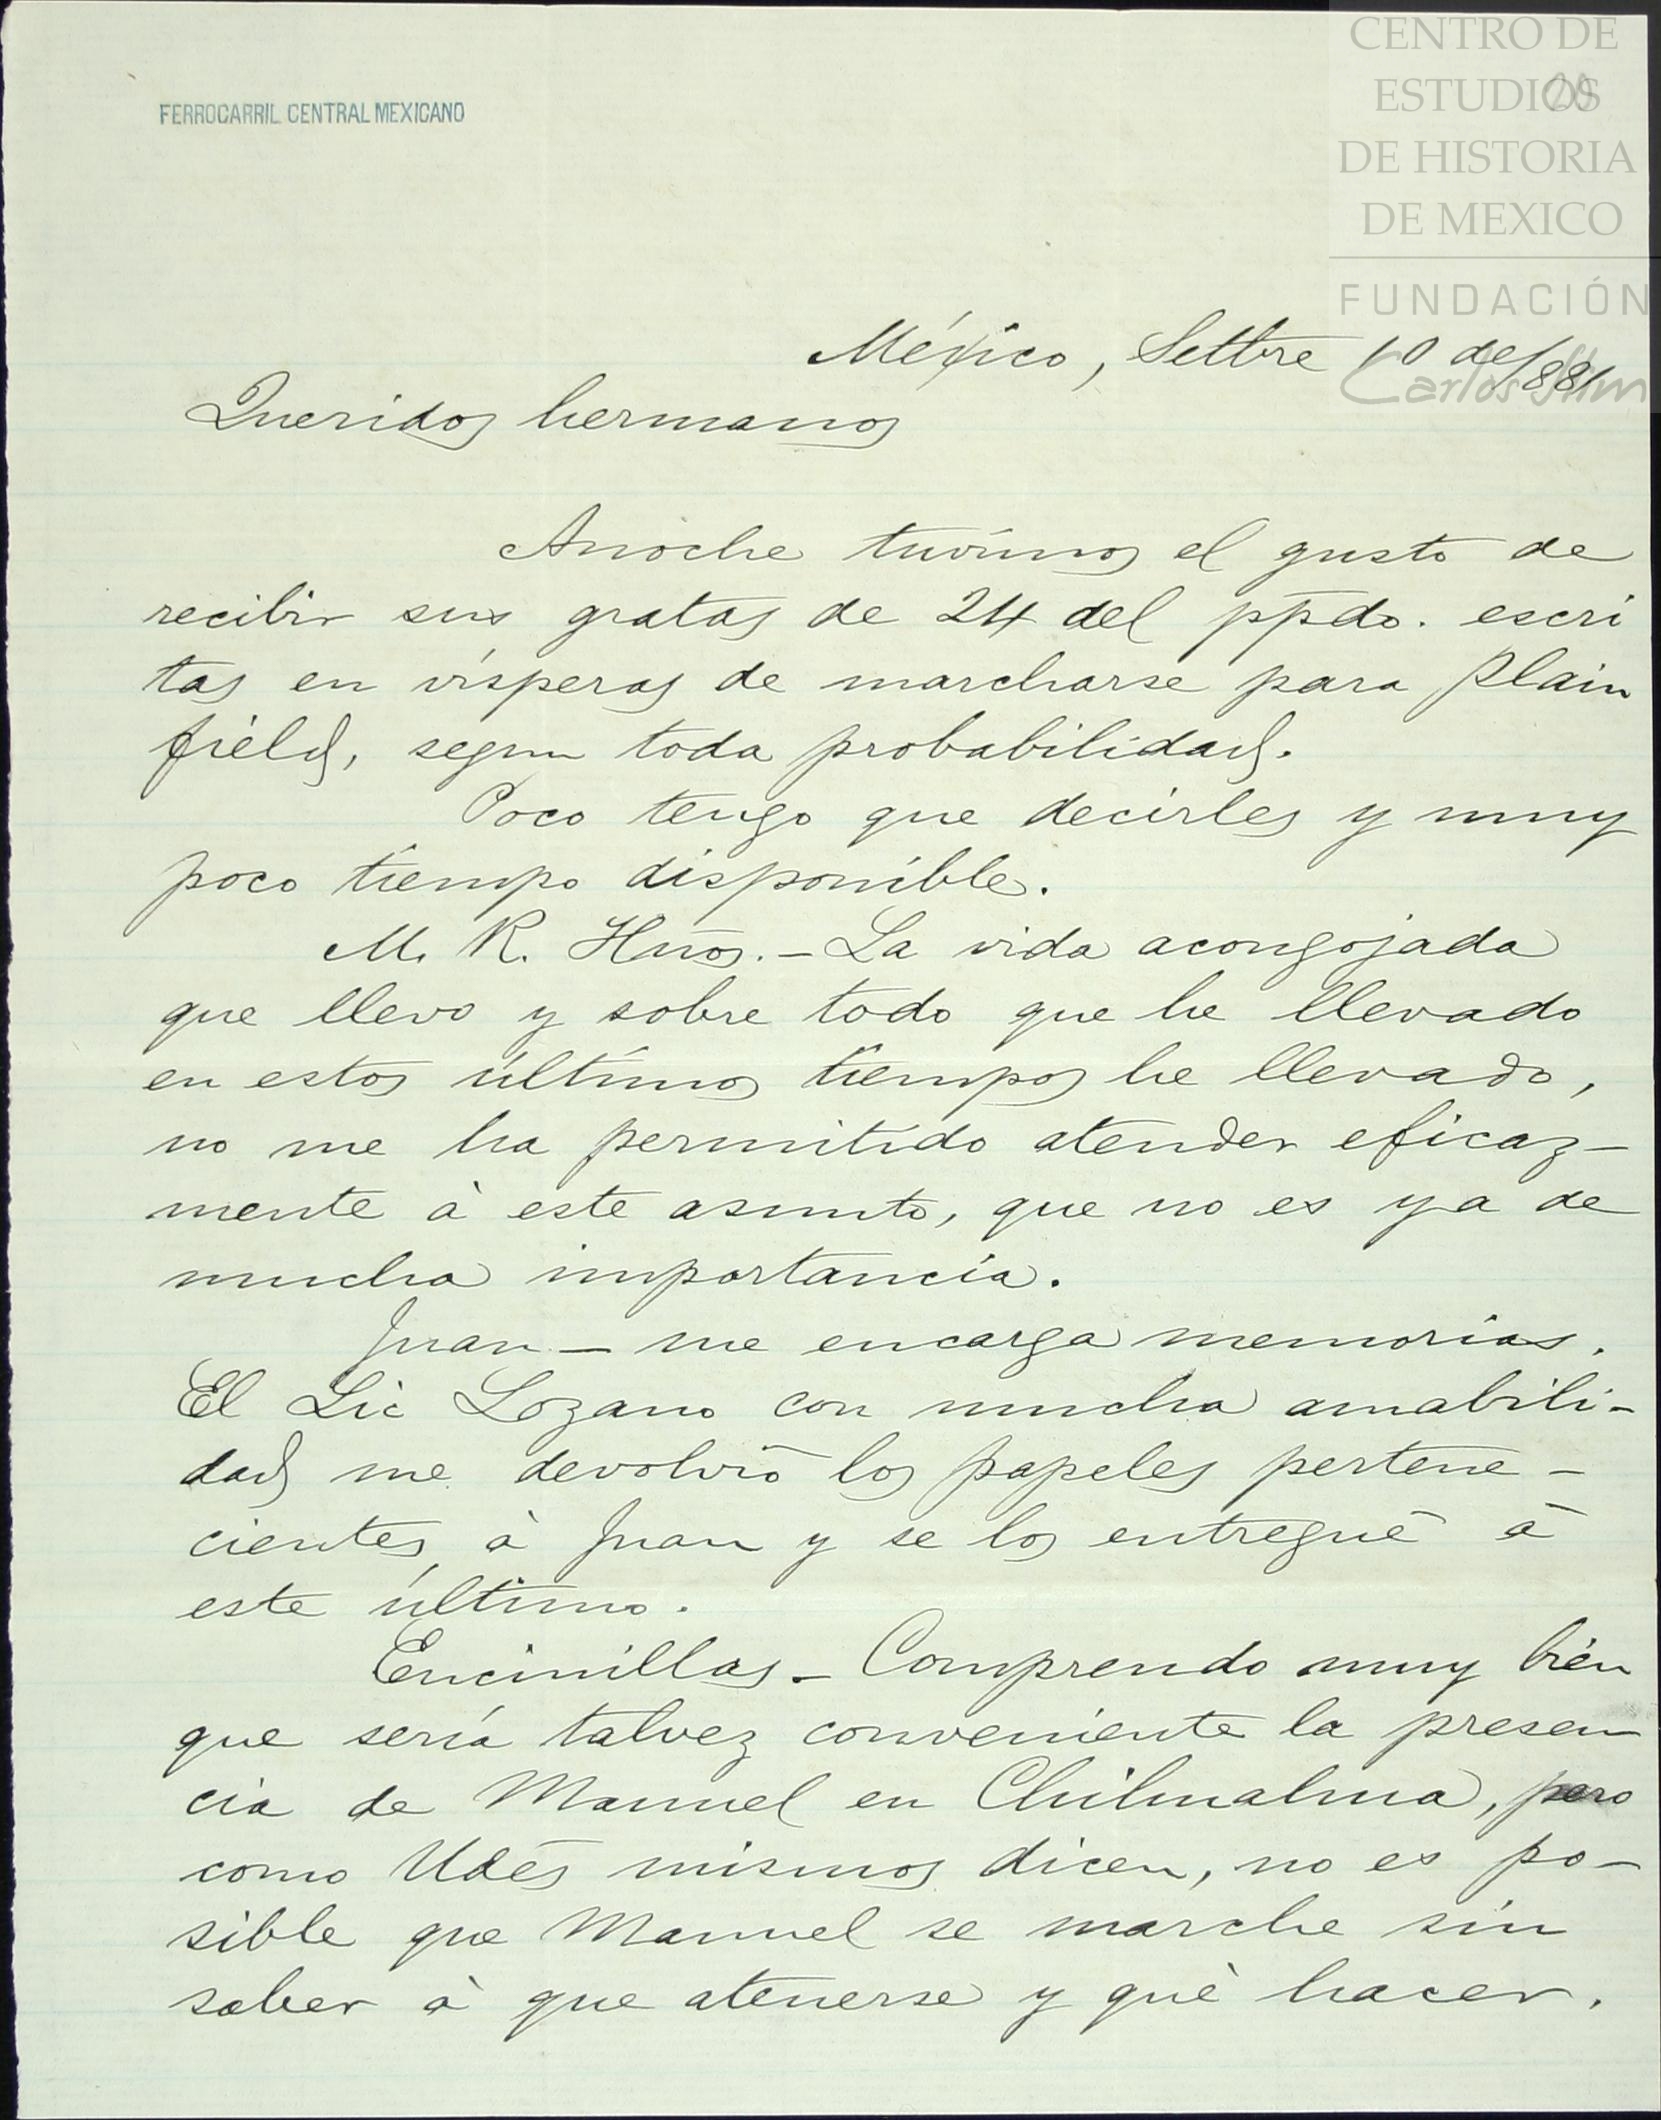 CENTRO DE
ESTUDIOS
DE HISTORIA
DE MEXICO
FUNDACIÓN
Carlos Slim
20
FERROCARRIL CENTRAL MEXICANO
México, Settbre 10 de/881
Queridos hermanos
Anoche tuvimos el gusto de
recibir sus gratas de 24 del ppdo. escri
tas en vísperas de marcharse para Plain
field, segun toda probabilidad.
Poco tengo que decirles y muy
poco tiempo disponible.
M. R. Hnos. – La vida acongojada
que llevo y sobre todo que he llevado
en estos últimos tiempos he llevado,
no me ha permitido atender eficaz-
mente à este asunto, que no es ya de
mucha importancia.
Juan – me encarga memorias.
El Lic Lozano con mucha amabili-
dad me devolvió los papeles pertene-
cientes à Juan y se los entregué á
este último.
Encinillas – Comprendo muy bien
que sería talvez conveniente la presen
cia de Manuel en Chihuahua, pero
como Udes mismos dicen, no es po-
sible que Manuel se marche sin
saber à que atenerse y què hacer.